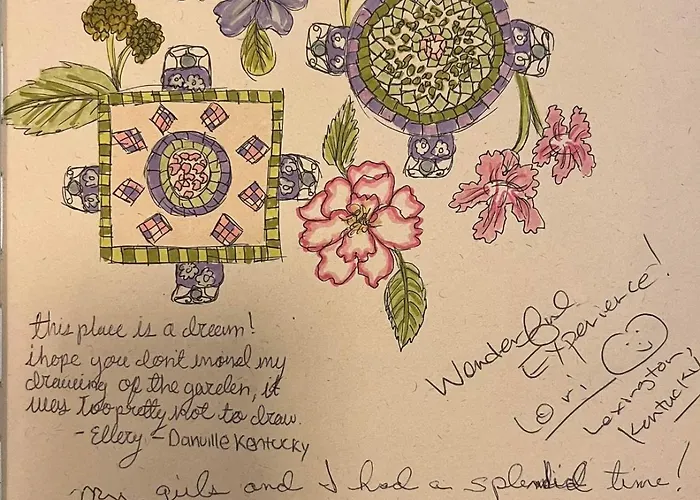 this place is a dream!
i hope you don't mind my
drawing of the garden, it
was too pretty not to draw.
- Ellery - Danville Kentucky
Wonderful
Experience!
Lori
Lexington,
Kentucky
My girls and I had a splendid time!